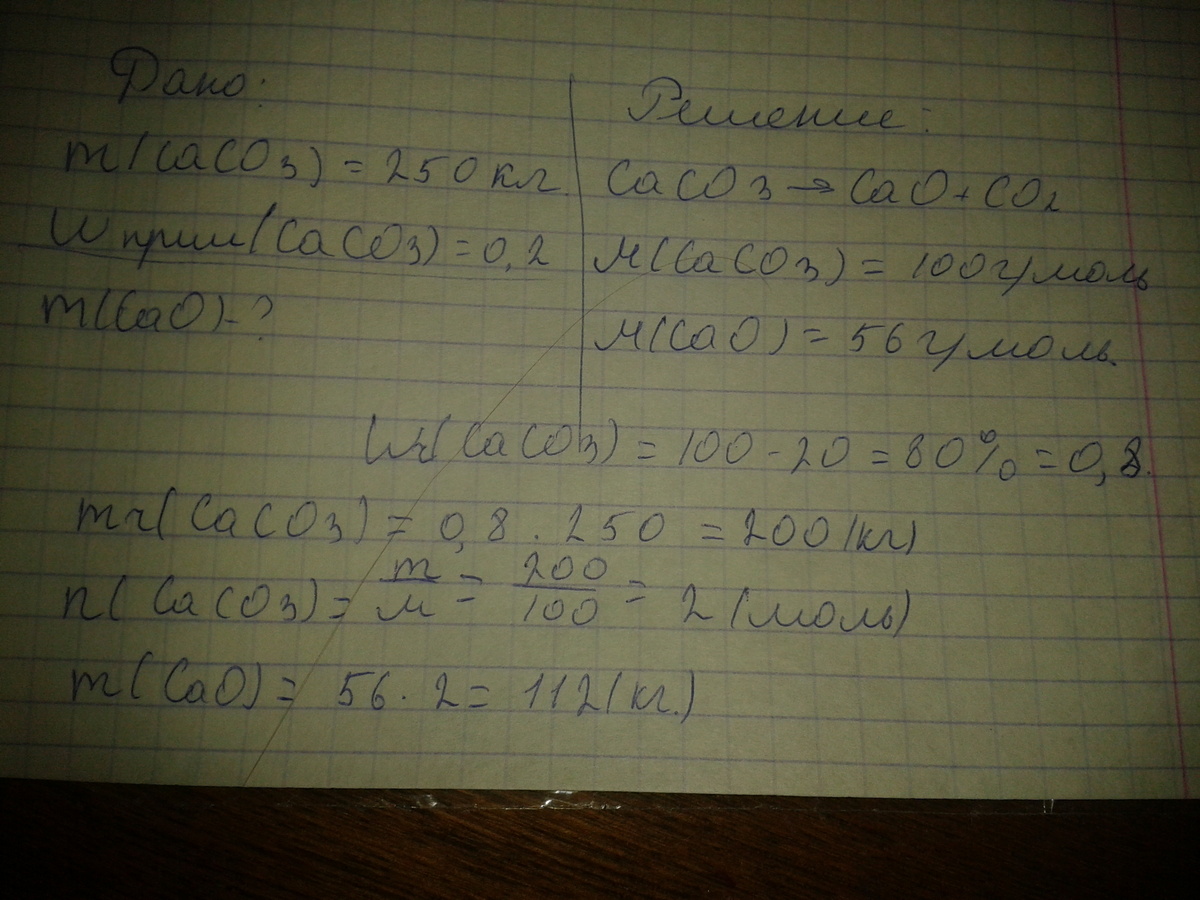 Дано:
m(CaCO3) = 250 кг
Wприм(CaCO3) = 0,2
m(CaO) - ?
Решение:
CaCO3 → CaO + CO2
M(CaCO3) = 100 г/моль
M(CaO) = 56 г/моль.
Wч(CaCO3) = 100 - 20 = 80% = 0,8.
mч(CaCO3) = 0,8 · 250 = 200 (кг)
n(CaCO3) = m/M = 200/100 = 2 (моль)
m(CaO) = 56 · 2 = 112 (кг.)